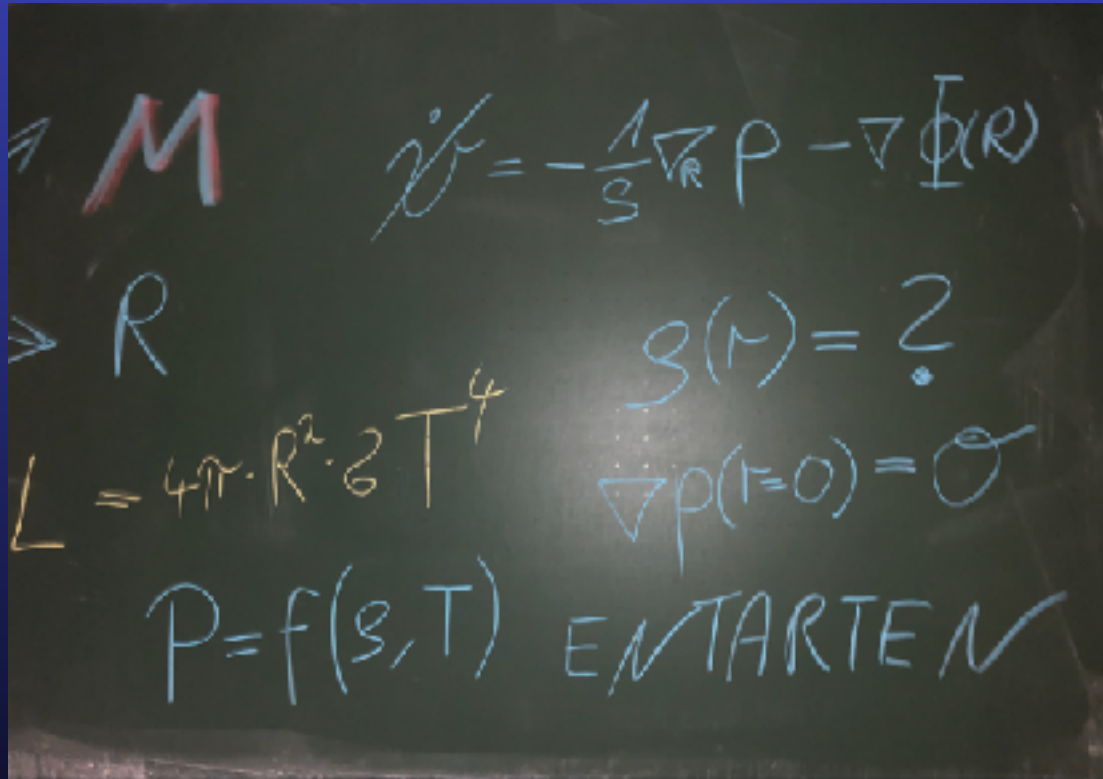 1 M
v̇ = -1/ρ ∇_R P - ∇Φ(R)
> R
ρ(r) = ?
L = 4π·R²·σT⁴
∇p(r=0) = 0
P=f(ρ,T) ENTARTEN